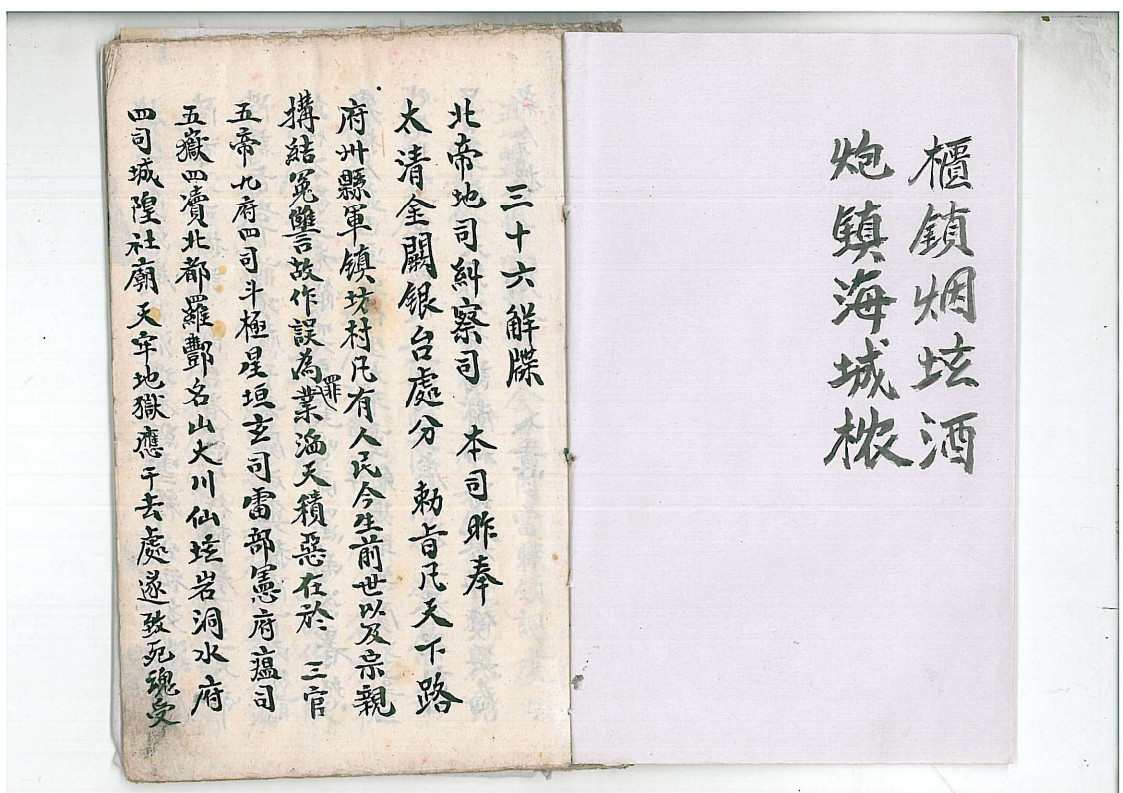 櫃鎖烟坛酒
炮鎮海城檂
三十六解牒
北帝地司糾察司 本司昨奉
太清金闕銀台處分 勅旨凡天下路
府州縣軍镇坊村凡有人民今生前世以及宗親
搆結冤讐言故作誤為罪業滔天積惡在於 三官
五帝九府四司斗極星垣玄司雷部憲府瘟司
五嶽四瀆北都羅酆名山大川仙坛岩洞水府
四司城隍社廟天牢地獄應干去處遂致死魂受